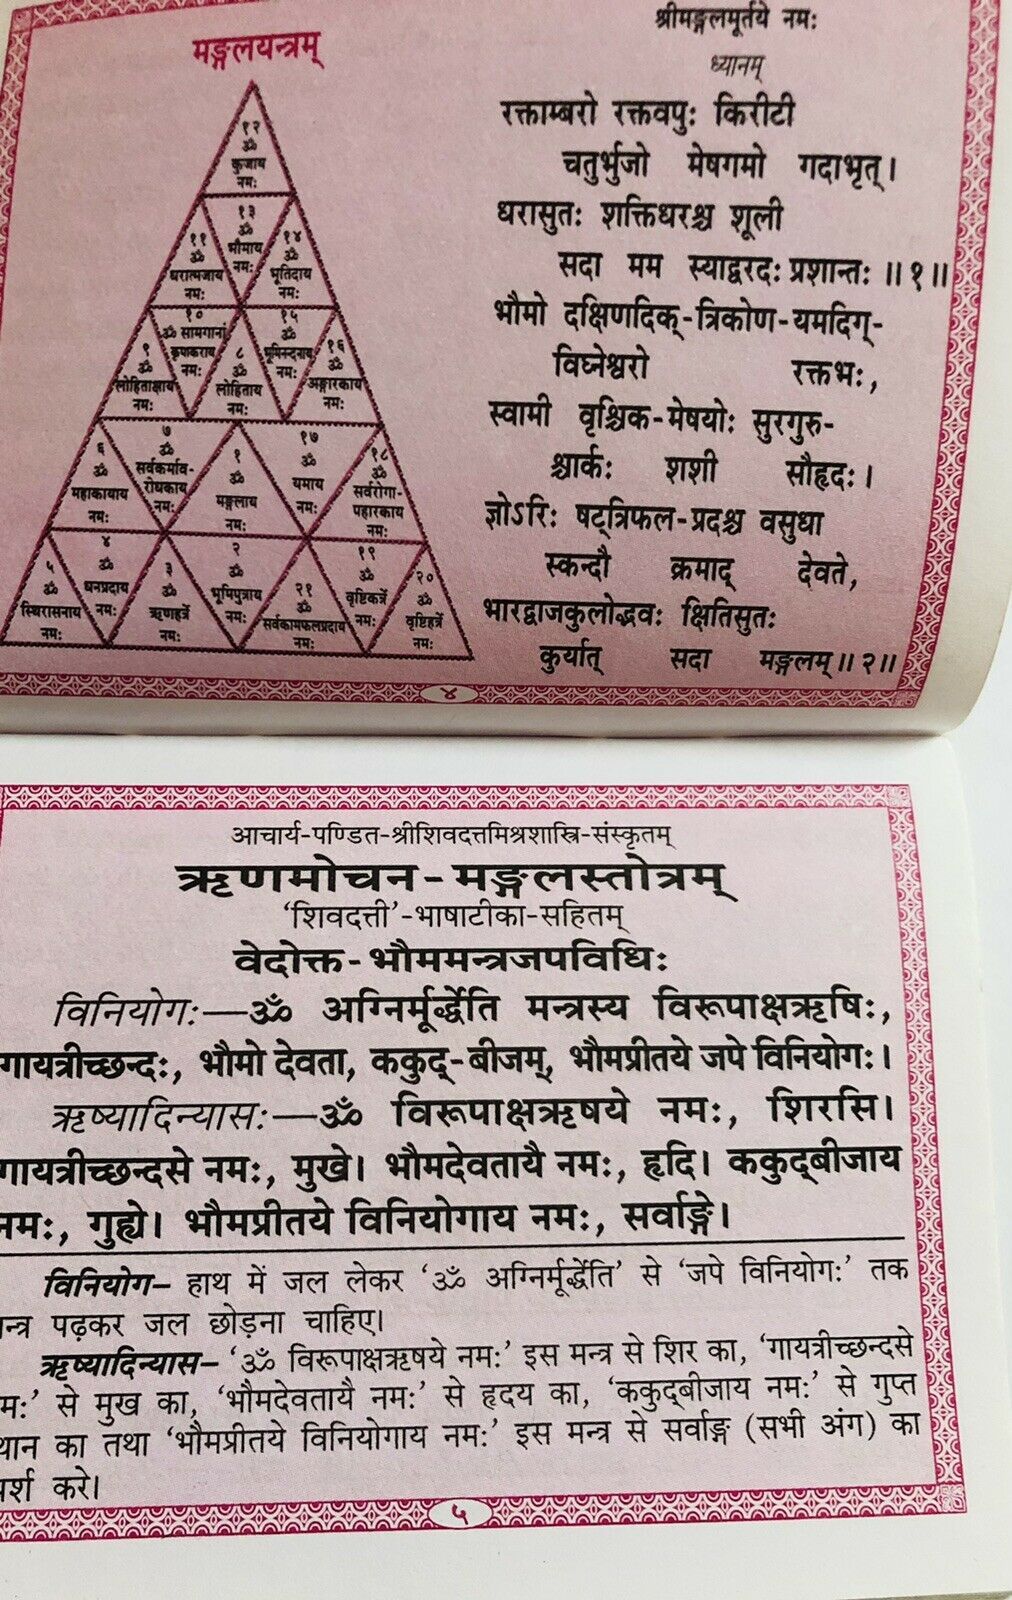 मङ्गलयन्त्रम्
१२
ॐ
कुजाय
नमः
११
ॐ
धरात्मजाय
नमः
१३
ॐ
भौमाय
नमः
१४
ॐ
भूतिदाय
नमः
९
ॐ
लोहिताक्षाय
नमः
१०
ॐ सामगानां
कृपाकराय
नमः
८
ॐ
लोहिताय
नमः
१५
ॐ
भूमिनन्दनाय
नमः
१६
ॐ
अङ्गारकाय
नमः
६
ॐ
महाकायाय
नमः
७
ॐ
सर्वकर्माव-
रोधकाय
नमः
१
ॐ
मङ्गलाय
नमः
१७
ॐ
यमाय
नमः
१८
ॐ
सर्वरोगा-
पहारकाय
नमः
५
ॐ
स्थिरासनाय
नमः
४
ॐ
धनप्रदाय
नमः
३
ॐ
ऋणहर्त्रे
नमः
२
ॐ
भूमिपुत्राय
नमः
२१
ॐ
सर्वकामफलप्रदाय
नमः
१९
ॐ
वृष्टिकर्त्रे
नमः
२०
ॐ
वृष्टिहर्त्रे
नमः
श्रीमङ्गलमूर्तये नमः
ध्यानम्
रक्ताम्बरो रक्तवपुः किरीटी
चतुर्भुजो मेषगमो गदाभृत्।
धरासुतः शक्तिधरश्च शूली
सदा मम स्याद्वरदः प्रशान्तः ॥१॥
भौमो दक्षिणदिक्-त्रिकोण-यमदिग्-
विघ्नेश्वरो रक्तभः,
स्वामी वृश्चिक-मेषयोः सुरगुरु-
श्चार्कः शशी सौहृदः।
ज्ञोऽरिः षट्त्रिफल-प्रदश्च वसुधा
स्कन्दौ क्रमाद् देवते,
भारद्वाजकुलोद्भवः क्षितिसुतः
कुर्यात् सदा मङ्गलम्॥२॥
४
आचार्य-पण्डित-श्रीशिवदत्तमिश्रशास्त्रि-संस्कृतम्
ऋणमोचन-मङ्गलस्तोत्रम्
'शिवदत्ती'-भाषाटीका-सहितम्
वेदोक्त-भौममन्त्रजपविधिः
विनियोगः—ॐ अग्निर्मूर्द्धेति मन्त्रस्य विरूपाक्षऋषिः,
गायत्रीच्छन्दः, भौमो देवता, ककुद्-बीजम्, भौमप्रीतये जपे विनियोगः।
ऋष्यादिन्यासः—ॐ विरूपाक्षऋषये नमः, शिरसि।
गायत्रीच्छन्दसे नमः, मुखे। भौमदेवतायै नमः, हृदि। ककुद्बीजाय
नमः, गुह्ये। भौमप्रीतये विनियोगाय नमः, सर्वाङ्गे।
विनियोग– हाथ में जल लेकर 'ॐ अग्निर्मूर्द्धेति' से 'जपे विनियोगः' तक
न्त्र पढ़कर जल छोड़ना चाहिए।
ऋष्यादिन्यास– 'ॐ विरूपाक्षऋषये नमः' इस मन्त्र से शिर का, 'गायत्रीच्छन्दसे
मः' से मुख का, 'भौमदेवतायै नमः' से हृदय का, 'ककुद्बीजाय नमः' से गुप्त
थान का तथा 'भौमप्रीतये विनियोगाय नमः' इस मन्त्र से सर्वाङ्ग (सभी अंग) का
पर्श करे।
५